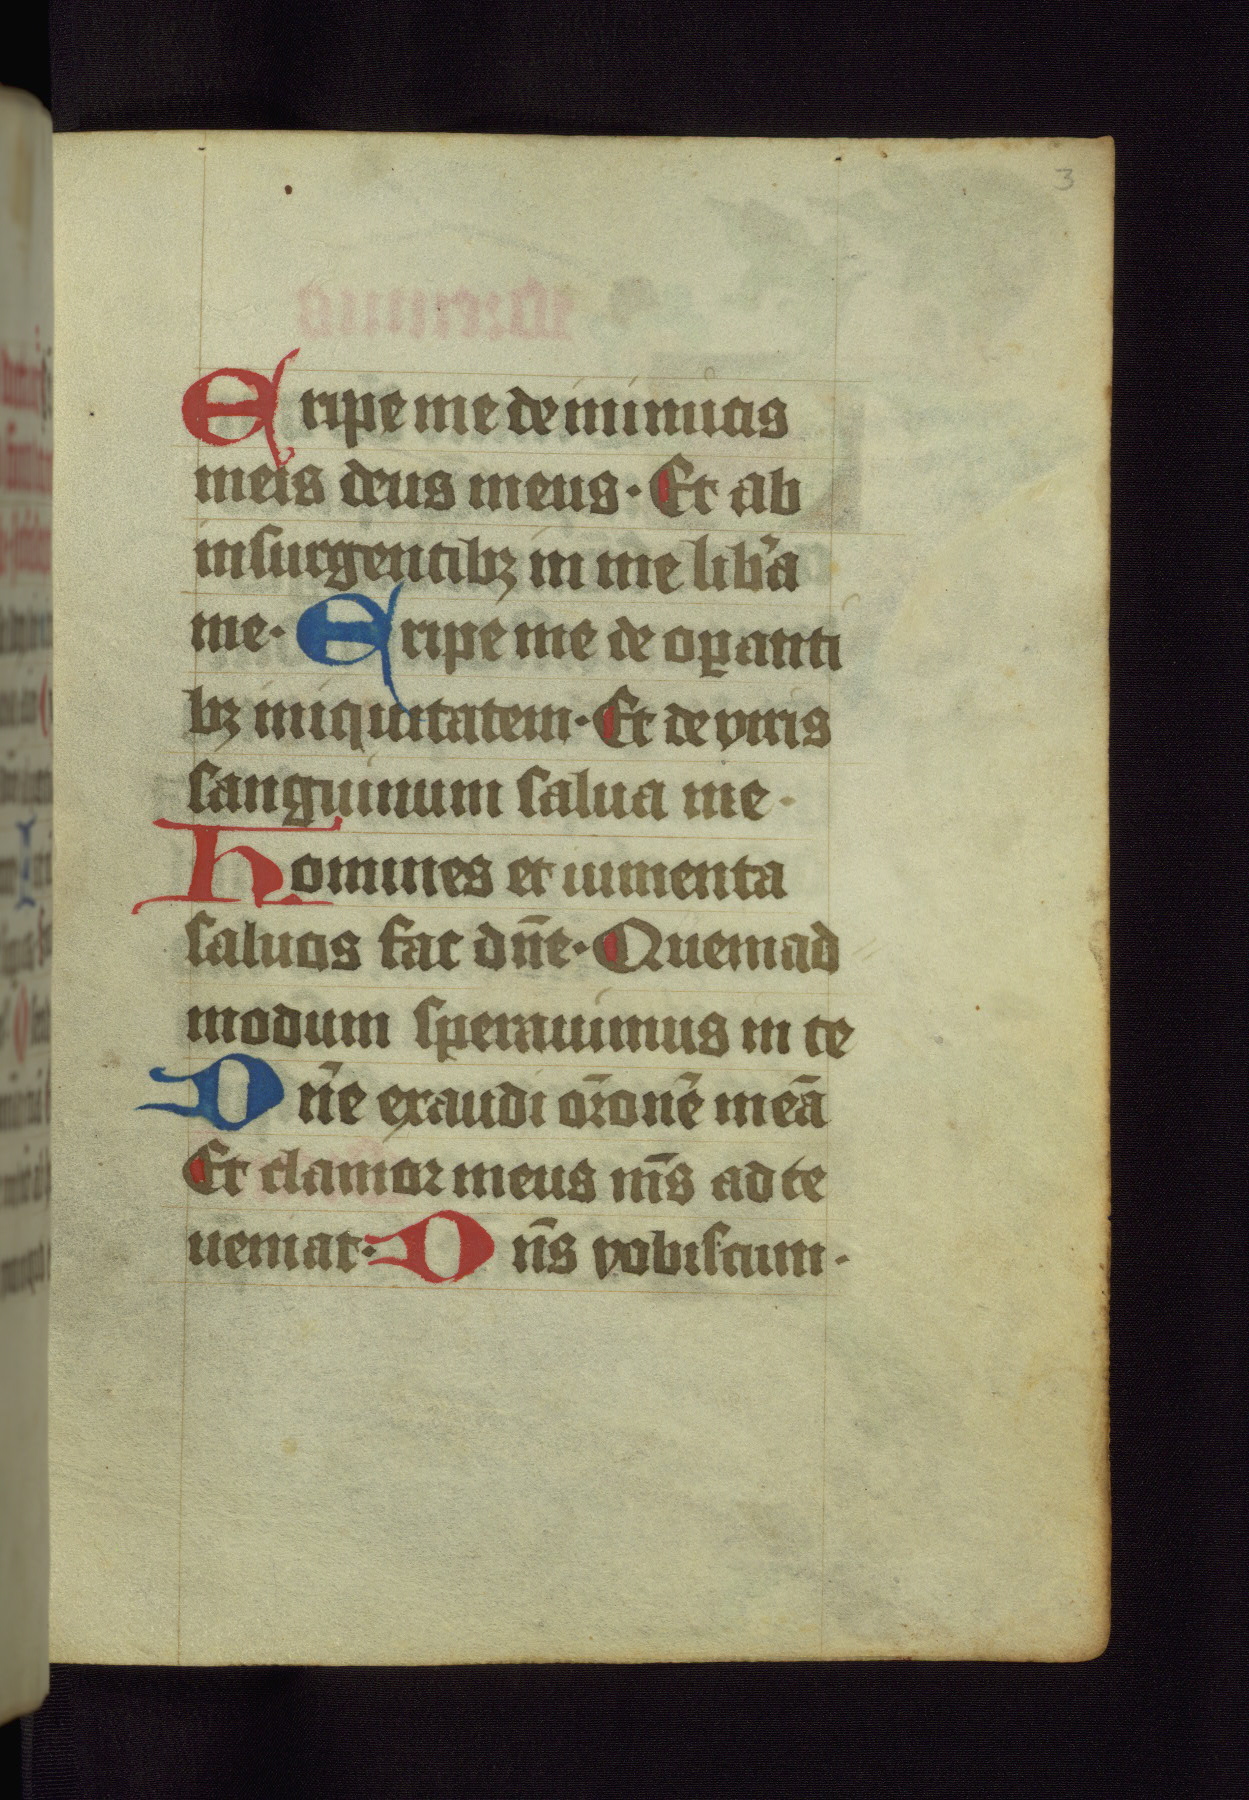 3
Eripe me de inimicis
meis deus meus· Et ab
insurgentibꝫ in me lib̾a
me· Eripe me de oꝑanti
bꝫ iniquitatem· Et de viris
sanguinum salua me·
Homines et iumenta
saluabis fac dn̄e· Quemad
modum sperauimus in te
Dn̄e exaudi or̄onē meā
Et clamor meus m̄s ad te
ueniat· Dn̄s vobiscum·